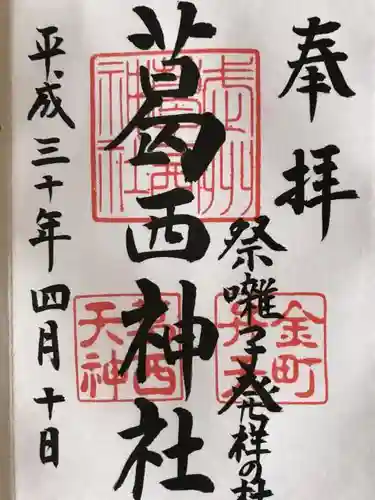 奉拝
祭囃子発祥の杜
葛西神社
平成三十年四月十日
葛西神社
金町
葛西
天神